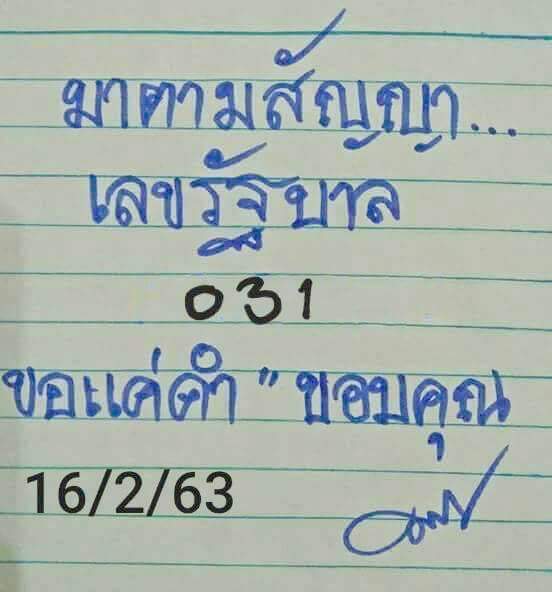 มาตามสัญญา...
เลขรัฐบาล
031
ขอแค่คำ "ขอบคุณ
16/2/63